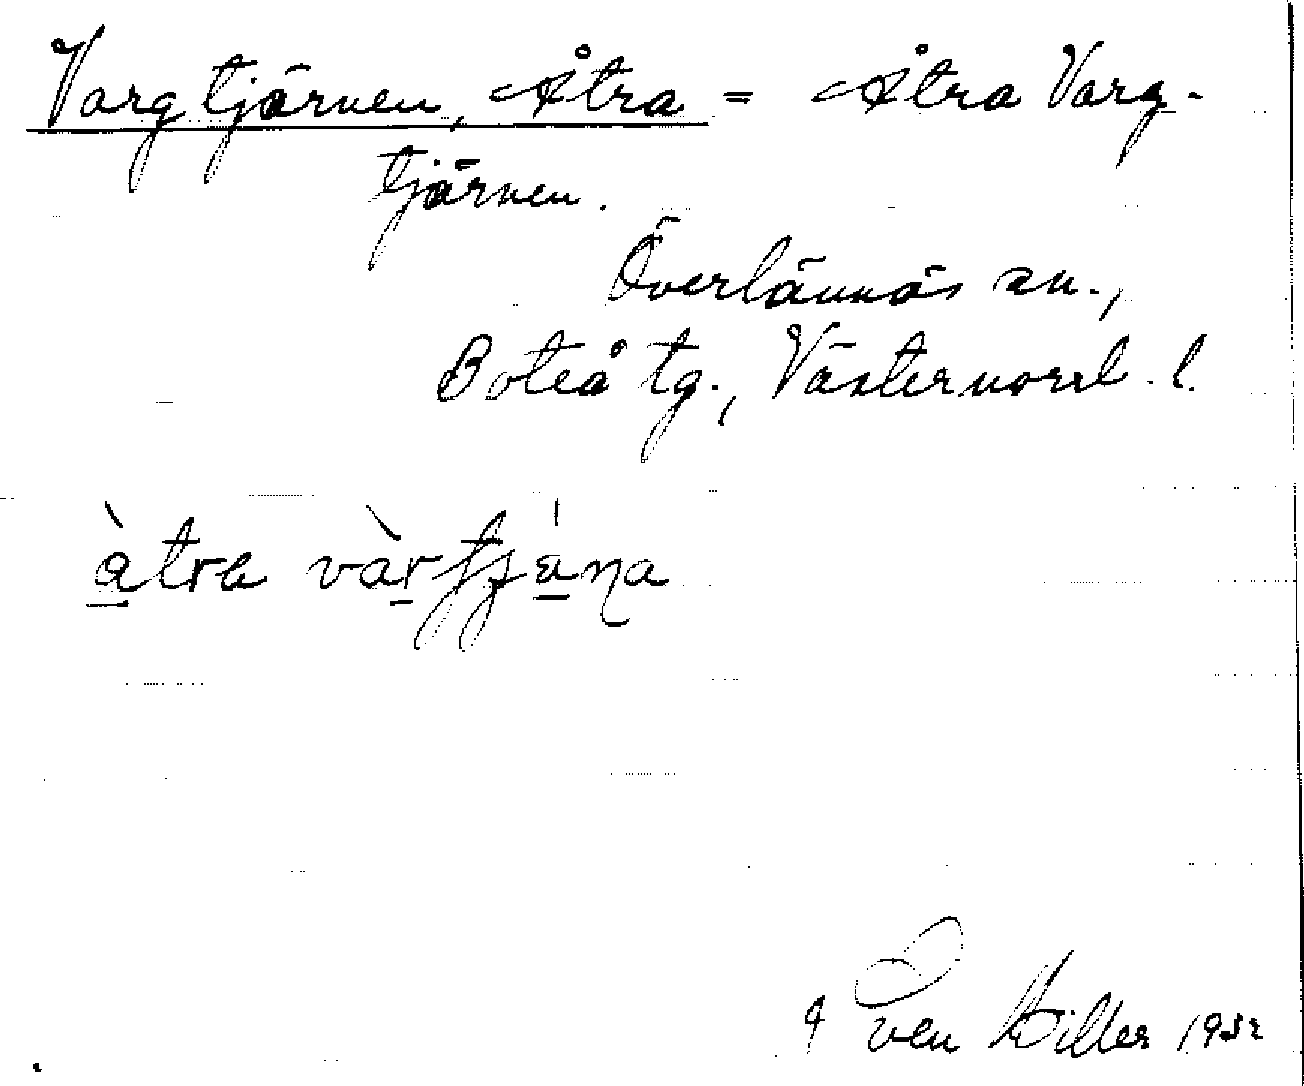 Vargtjärnen, Åtra = Åtra Varg-
tjärnen.
Överlännäs sn.,
Boteå tg., Västernorrl. l.
àtra vàrtjána
Sven Hiller 1932